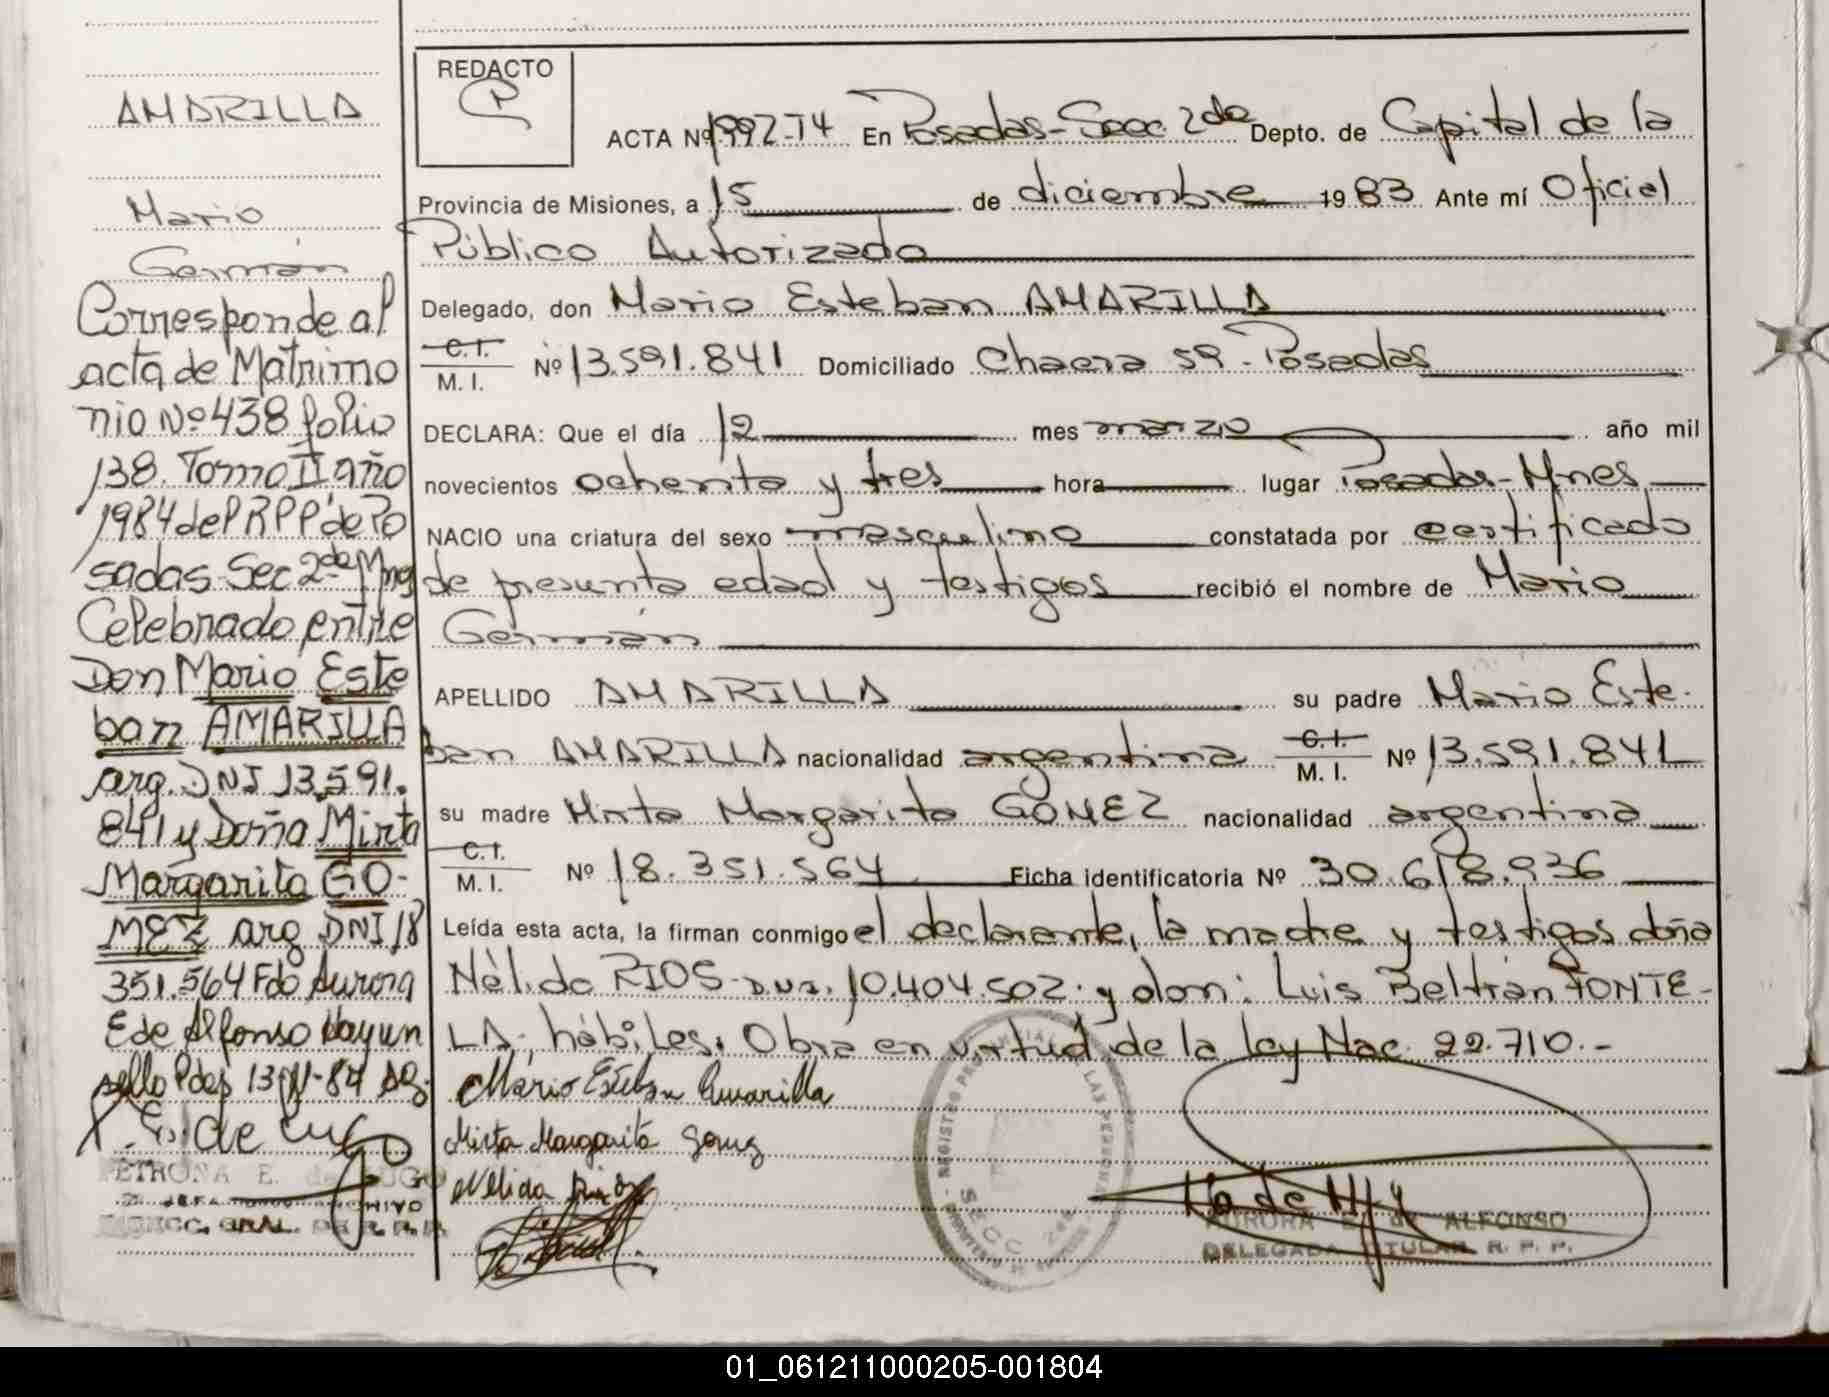 AMARILLA
Mario
Germán
Corresponde al
acta de Matrimo
nio Nº 438 folio
138. Tomo II año
1984 de P R P P de Po
sadas Sec 2da Mnes
Celebrado entre
Don Mario Este
ban AMARILLA
arg. DNI 13.591.
841 y Doña Mirta
Margarita GO-
MEZ arg DNI 18
351.564 Fdo Aurora
E de Alfonso Hay un
sello
E. de Lugo
PETRONA E. de LUGO
JEFA ARCHIVO
DIRECC. GRAL. DE R. P. P.
REDACTO
ACTA Nº 1992-T4 En Posadas-Secc. 2da Depto. de Capital de la
Provincia de Misiones, a 15 de diciembre 1983 Ante mí Oficial
Público Autorizado
Delegado, don Mario Esteban AMARILLA
C.I.
M. I. Nº 13.591.841 Domiciliado Chacra 59-Posadas
DECLARA: Que el día 12 mes marzo año mil
novecientos ochenta y tres hora lugar Posadas-Mnes
NACIO una criatura del sexo masculino constatada por certificado
de presunta edad y testigos recibió el nombre de Mario
Germán
APELLIDO AMARILLA su padre Mario Este-
ban AMARILLA nacionalidad argentina C.I. M. I. Nº 13.591.841
su madre Mirta Margarita GOMEZ nacionalidad argentina
C.I.
M. I. Nº 18.351.564 Ficha identificatoria Nº 30.618.936
Leída esta acta, la firman conmigo el declarante, la madre y testigos doña
Nélida RIOS-D.N.I. 10.404.502. y don: Luis Beltrán FONTE-
LA, hábiles. Obra en virtud de la ley Nac. 22.710.-
Mario Esteban Amarilla
Mirta Margarita Gomez
Nélida Ríos
REGISTRO PROVINCIAL DE LAS PERSONAS
SECC 2da
AURORA E. de ALFONSO
DELEGADA TITULAR R. P. P.
01_061211000205-001804